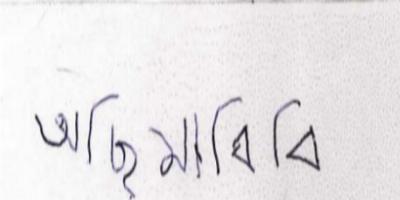 অছিমা বিবি